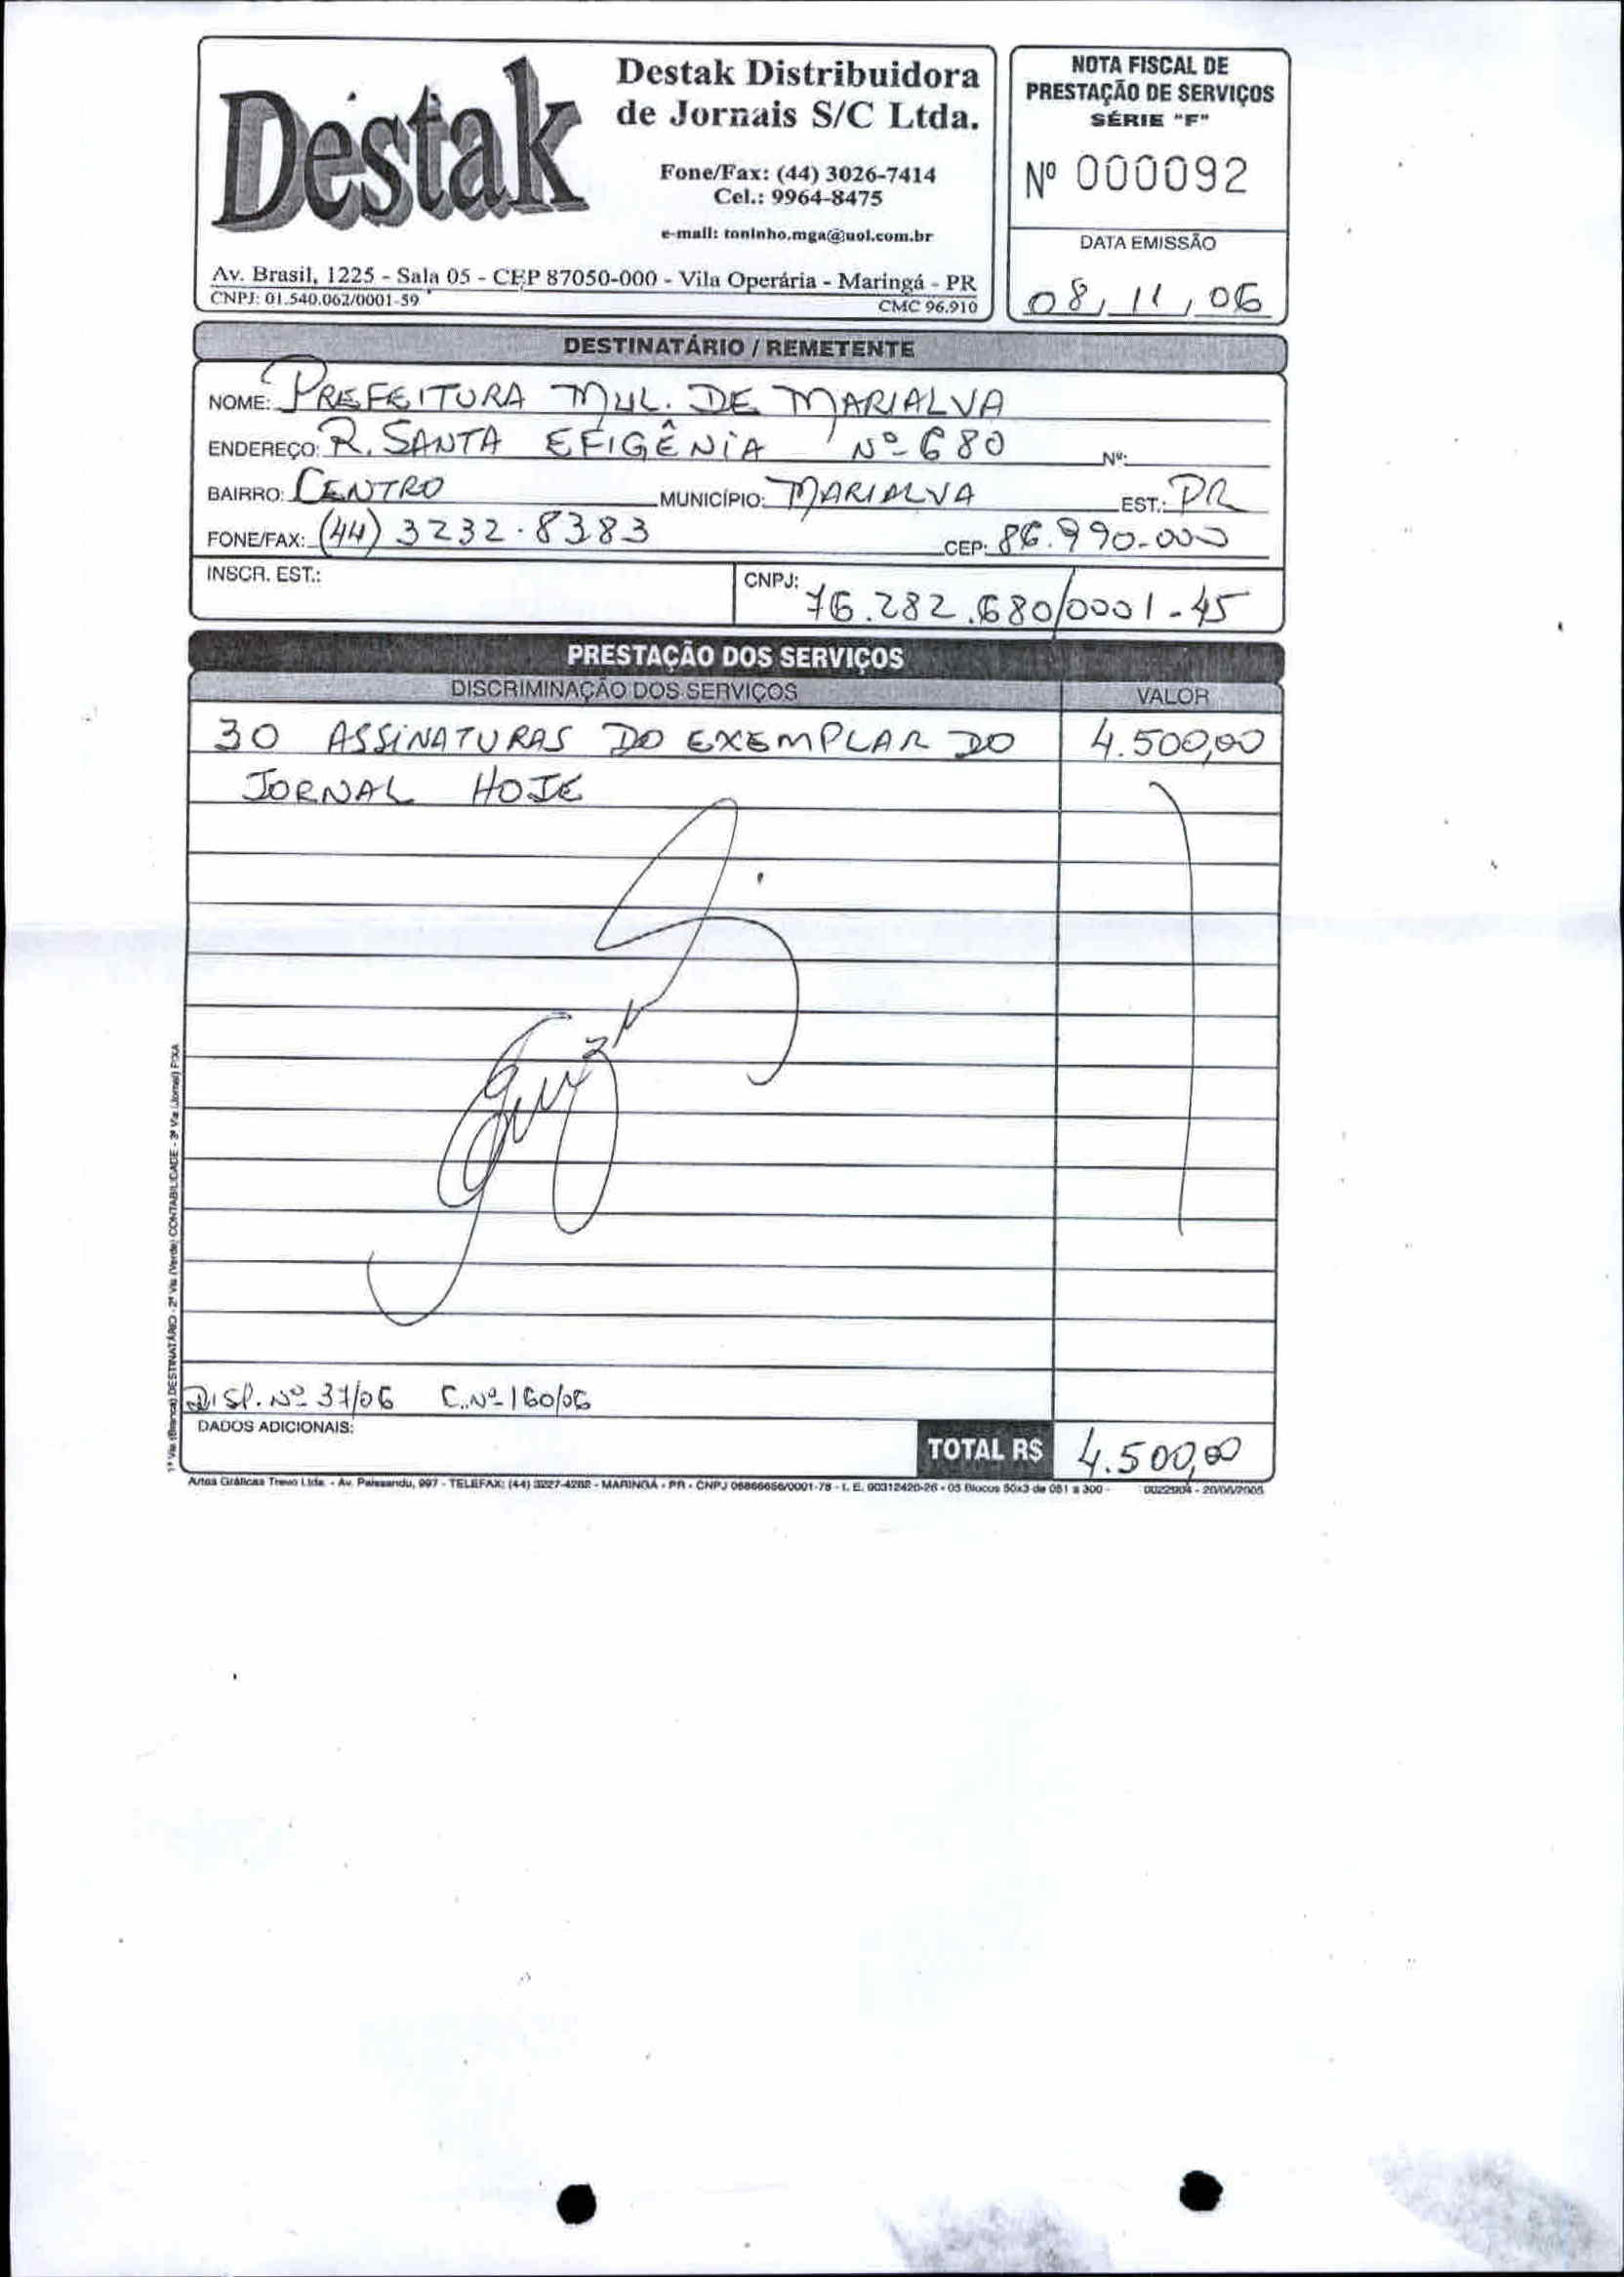 Destak
Destak Distribuidora
de Jornais S/C Ltda.
Fone/Fax: (44) 3026-7414
Cel.: 9964-8475
e-mail: toninho.mga@uol.com.br
Av. Brasil, 1225 - Sala 05 - CEP 87050-000 - Vila Operária - Maringá - PR
CNPJ: 01.540.062/0001-59 CMC 96.910
NOTA FISCAL DE
PRESTAÇÃO DE SERVIÇOS
SÉRIE "F"
Nº 000092
DATA EMISSÃO
08, 11, 06
DESTINATÁRIO / REMETENTE
NOME: PREFEITURA MUL. DE MARIALVA
ENDEREÇO: R. SANTA EFIGÊNIA Nº 680 Nº:
BAIRRO: CENTRO MUNICÍPIO: MARIALVA EST.: PR
FONE/FAX: (44) 3232.8383 CEP: 86.990-000
INSCR. EST.: CNPJ: 76.282.680/0001-45
PRESTAÇÃO DOS SERVIÇOS
DISCRIMINAÇÃO DOS SERVIÇOS VALOR
30 ASSINATURAS DO EXEMPLAR DO 4.500,00
JORNAL HOJE
DISP. Nº 37/06 C.Nº 160/06
DADOS ADICIONAIS:
TOTAL R$ 4.500,00
Artes Gráficas Trevo Ltda. - Av. Paissandu, 997 - TELEFAX: (44) 3227-4282 - MARINGÁ - PR - CNPJ 06866656/0001-78 - I. E. 90312420-26 - 05 Blocos 50x3 de 051 a 300 -
1ª Via (Branca) DESTINATÁRIO - 2ª Via (Verde) CONTABILIDADE - 3ª Via (Jornal) FIXA